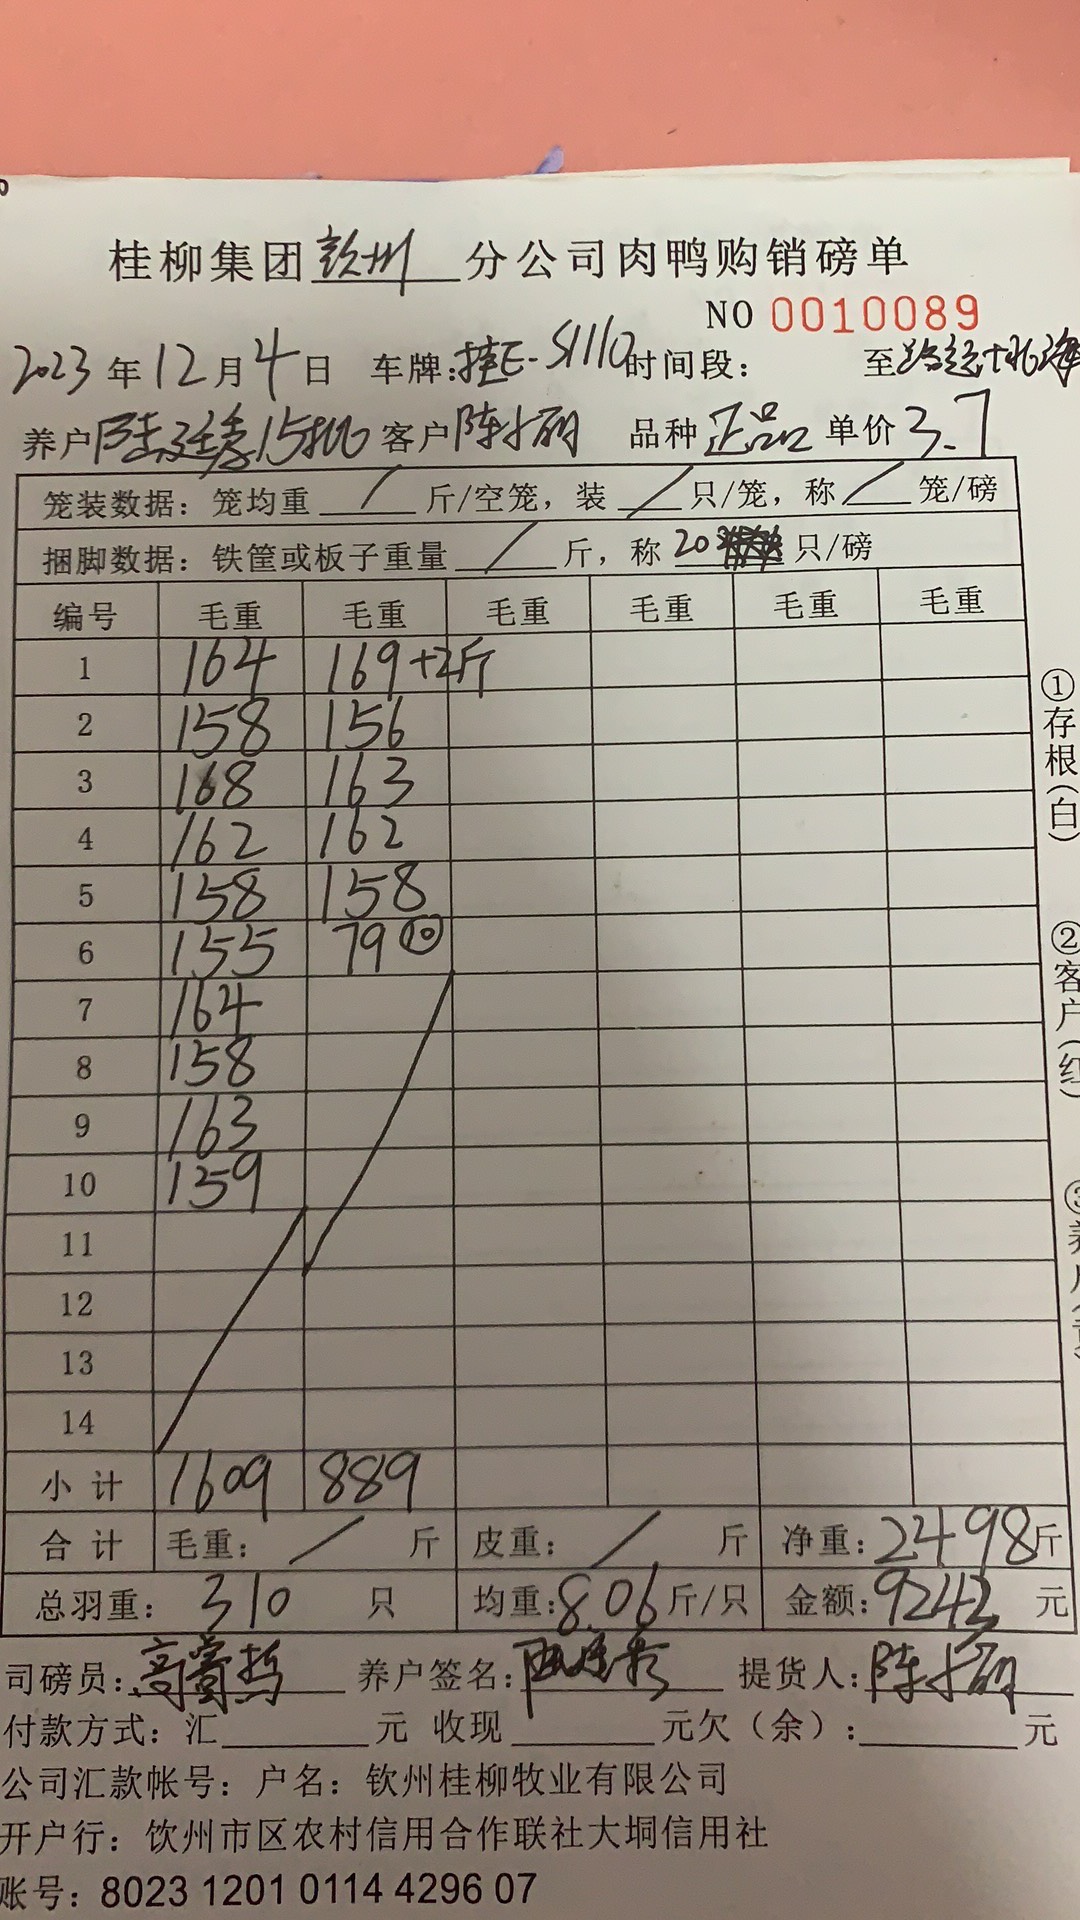 桂柳集团钦州分公司肉鸭购销磅单
NO 0010089
2023年12月4日 车牌:桂E-S1110时间段: 至
养户 15批 客户 陈 丽 品种 正品 单价 3.7
笼装数据:笼均重 / 斤/空笼,装 / 只/笼,称 / 笼/磅
捆脚数据:铁筐或板子重量 / 斤,称 20 只/磅
编号 毛重 毛重 毛重 毛重 毛重 毛重
1 164 169+2斤
2 158 156
3 168 163
4 162 162
5 158 158
6 155 79⑩
7 164
8 158
9 163
10 159
11
12
13
14
小计 1609 889
合计 毛重: / 斤 皮重: / 斤 净重:2498斤
总羽重: 310 只 均重:8.06斤/只 金额:9243元
司磅员: 养户签名: 提货人:陈 丽
付款方式:汇 元 收现 元欠(余): 元
公司汇款帐号:户名:钦州桂柳牧业有限公司
开户行:钦州市区农村信用合作联社大垌信用社
账号:8023 1201 0114 4296 07
①存根(白)
②客户(红)